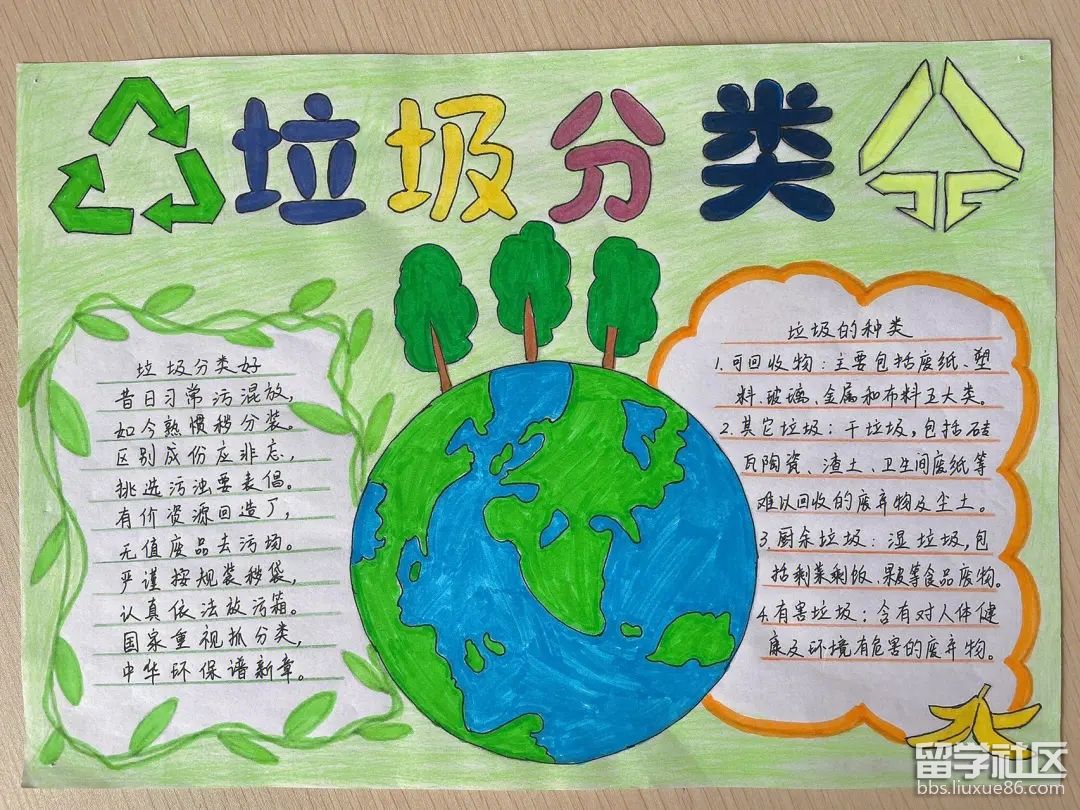 垃圾分类
垃圾分类好
昔日习常污混放,
如今熟惯秽分装。
区别成份应非忘,
挑选污浊要表倡。
有价资源回造丁,
无值废品去污场。
严谨按规装秽袋,
认真依法放污箱。
国家重视抓分类,
中华环保谱新章。
垃圾的种类
1.可回收物:主要包括废纸、塑
料、玻璃、金属和布料五大类。
2.其它垃圾:干垃圾,包括砖
瓦陶瓷、渣土、卫生间废纸等
难以回收的废弃物及尘土。
3厨余垃圾:湿垃圾,包
括剩菜剩饭、果皮等食品废物。
4.有害垃圾:含有对人体健
康及环境有危害的废弃物。
留学社区
bbs.liuxue86.com